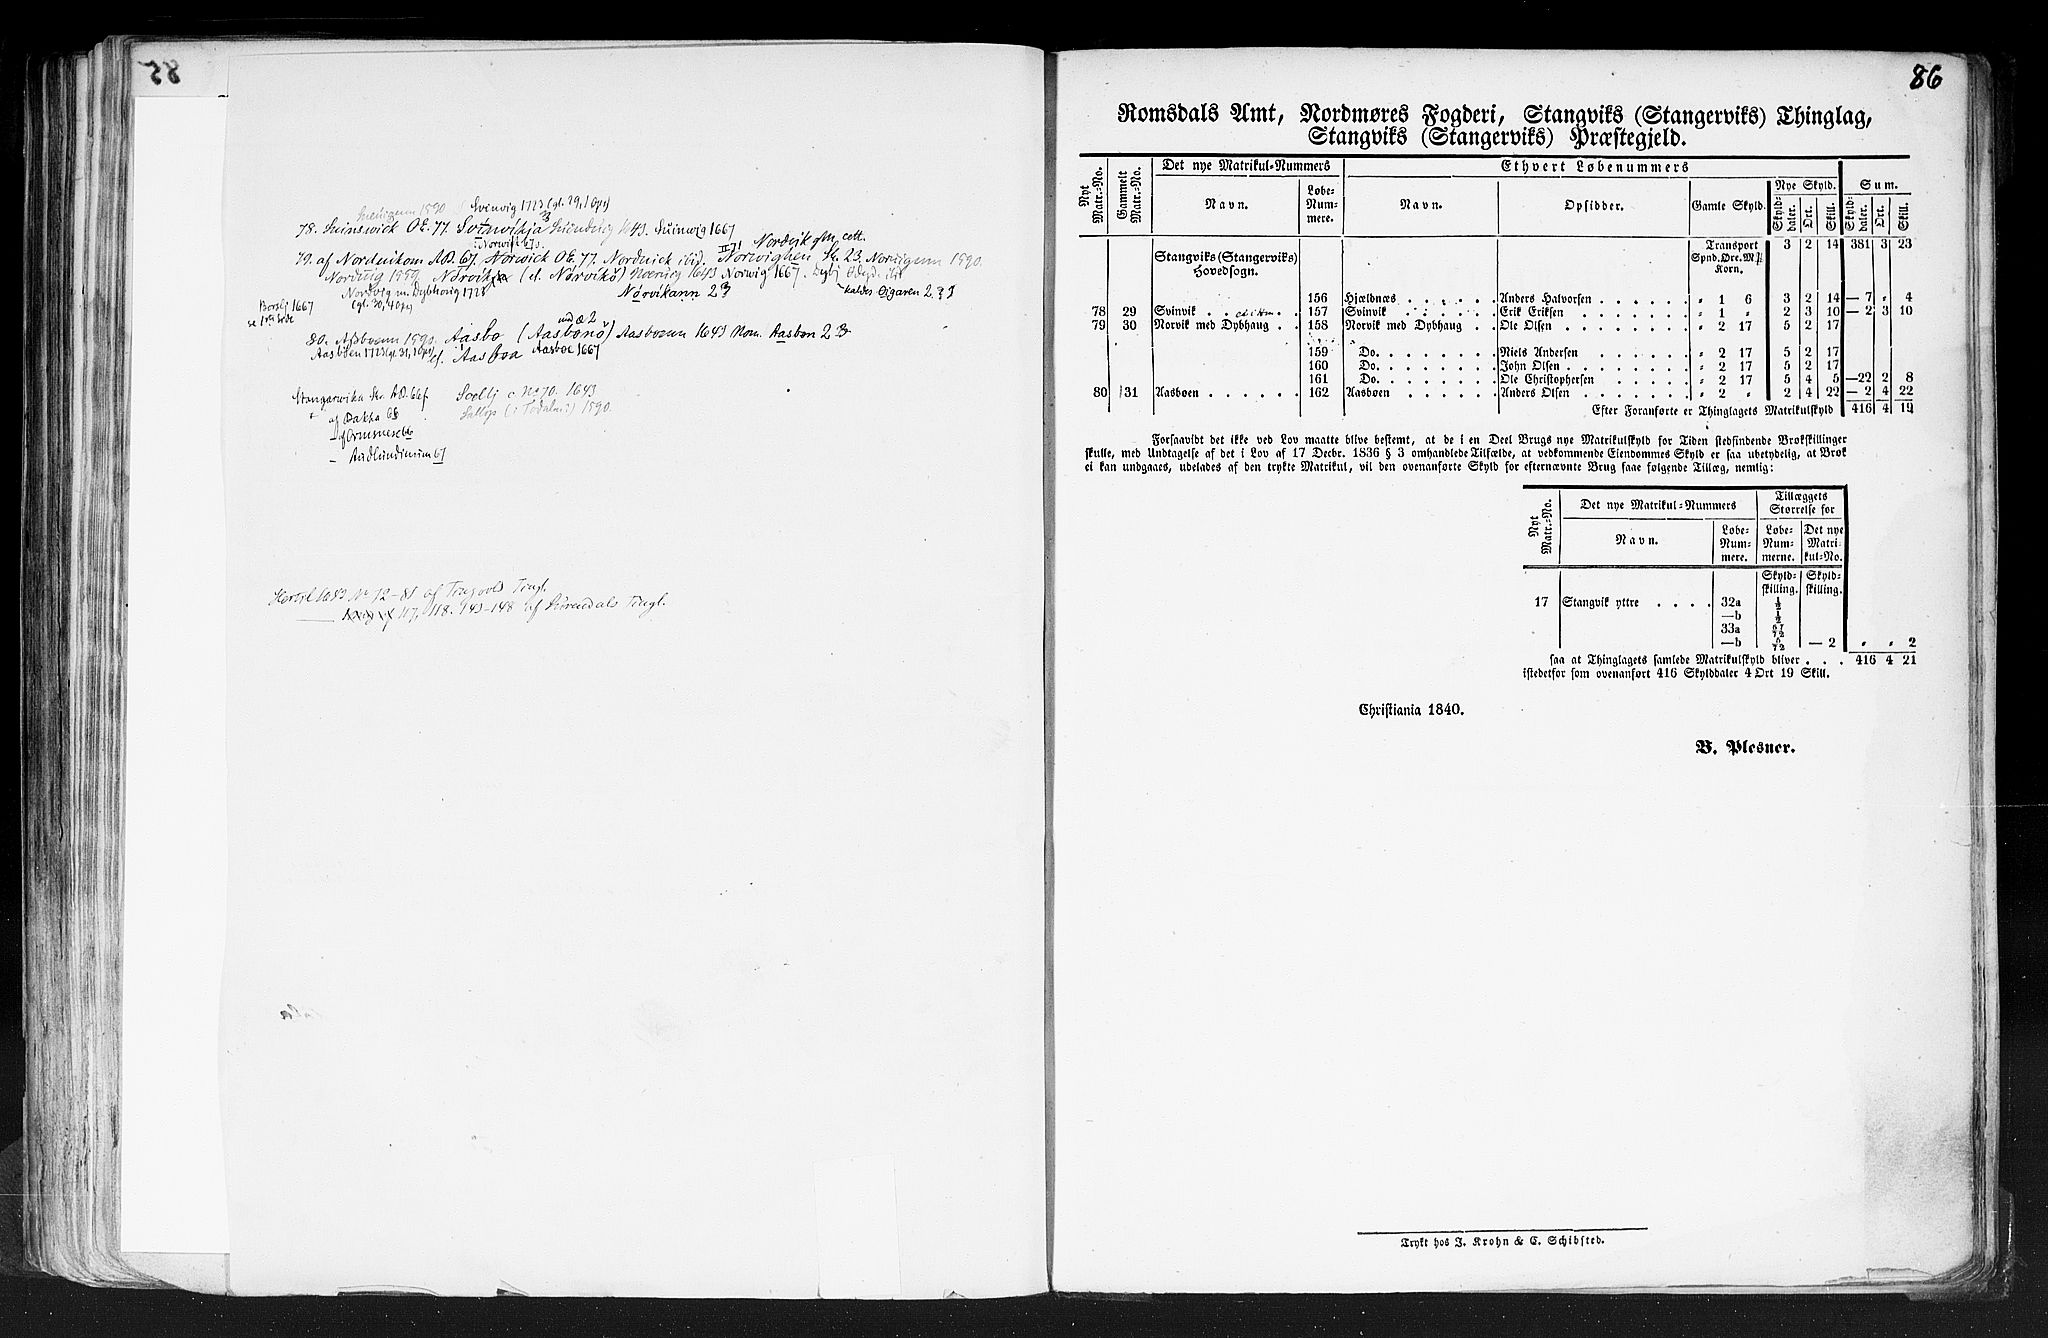 Svinvig 1723 (gl. 29, 1 Ops)
78. Suinswick OE. 77 Svinvikja 1643. Suinwig 1667
Norwiik 67.
Nordvik ofte, cett.
79. af Norduikom AB. 67, Norwick OE. 77. Norduick ibid. Norwighen St. 23. Norvigenn 1590.
Norduig 1559. (el. Nørvikó) 1643 Norwig 1667.
Nordvig m. Dybhovig 1723 Nørvikann 2
Borslj 1667
(gl. 30, 4 Ops)
80. Asboenn 1590. Aasbo (Aasbonó) Aasboenn 1643 Nom. Aasbon 2
Aasbøen 1723 (gl. 31, 1 Ops) Aasboa Aasboe 1667
Stangarvika Skr. AB. 66f Scellj c No 70. 1643
af Bakka 68 1590.
af Ormsnese 66
Audlundinum 67
Hertil 1683 No 72-81 af Tingvold Tingl.
117, 118. 143-148 af Surendals Tingl.
86
Romsdals Amt, Nordmøres Fogderi, Stangviks (Stangerviks) Thinglag,
Stangviks (Stangerviks) Præstegjeld.
Nyt Matr.-No. Gammelt Matr.-No. Det nye Matrikul-Nummers Ethvert Løbenummers
Navn. Løbe-Nummere. Navn. Opsidder. Gamle Skyld. Nye Skyld. Sum.
Skylddaler. Ort. Skill. Skylddaler. Ort. Skill.
Transport 3 2 14 381 3 23
Stangviks (Stangerviks) Spnd. Øre. Mk.
Hovedsogn. Korn.
156 Hjældnæs . . . . . . Anders Halvorsen . . . . . . " 1 6 3 2 14 — 7 " 4
78 29 Svinvik . . 157 Svinvik . . . . . Erik Eriksen . . . . . . . " 1 " 2 3 10 — 2 3 10
79 30 Norvik med Dybhaug . . 158 Norvik med Dybhaug . . Ole Olsen . . . . . . . " 2 17 5 2 17
159 Do. . . . . . . . Niels Andersen . . . . . . " 2 17 5 2 17
160 Do. . . . . . . . John Olsen . . . . . . . " 2 17 5 2 17
161 Do. . . . . . . . Ole Christophersen . . . . . " 2 17 5 4 5 —22 2 8
80 31 Aasbøen . . . . . . 162 Aasbøen . . . . . . Anders Olsen . . . . . . . " 2 " 2 4 22 — 2 4 22
Efter Foranførte er Thinglagets Matrikulskyld 416 4 19
Forsaavidt det ikke ved Lov maatte blive bestemt, at de i en Deel Brugs nye Matrikulskyld for Tiden stedfindende Brøkskillinger
skulle, med Undtagelse af det i Lov af 17 Decbr. 1836 § 3 omhandlede Tilfælde, at vedkommende Eiendommes Skyld er saa ubetydelig, at Brøk
ei kan undgaaes, udelades af den trykte Matrikul, vil den ovenanførte Skyld for efternævnte Brug faae følgende Tillæg, nemlig:
Nyt Matr.-No. Det nye Matrikul-Nummers Tillæggets Størrelse for
Navn. Løbe-Nummere. Løbe-Nummerne. Det nye Matrikul-No.
Skyldskilling. Skyldskilling.
17 Stangvik yttre . . . . 32a ½
—b ½
33a 67/72
—b 5/72 — 2 " " 2
saa at Thinglagets samlede Matrikulskyld bliver . . . 416 4 21
istedetfor som ovenanført 416 Skylddaler 4 Ort 19 Skill.
Christiania 1840.
B. Plesner.
Trykt hos J. Krohn & C. Schibsted.